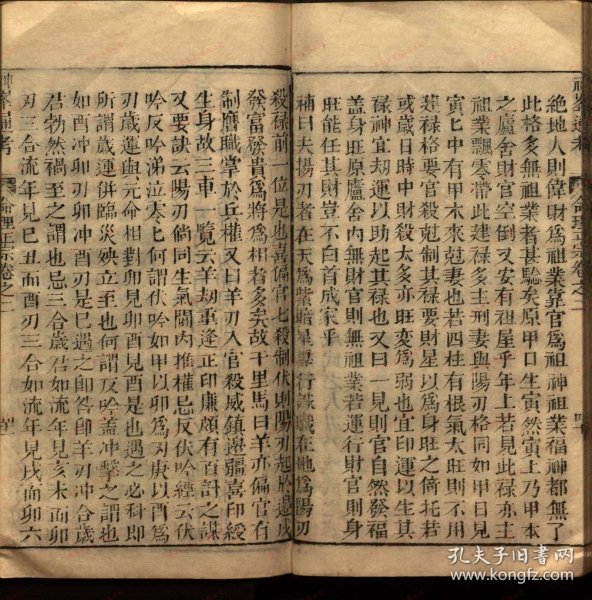 絶地人則偉財爲祖業靠官爲祖神祖業福神都無了
此格多無祖業者甚驗矣原甲日生寅然寅上乃甲本
之廬舍財官空倒又安有祖屋乎年上若見此祿亦主
祖業飄零帶此建祿多主刑妻與陽刃格同如甲日見
寅七中有甲木來尅妻也若四柱有根氣太旺則不用
建祿格要官殺尅制其祿要財星以爲身旺之倚托若
或歲日時中財殺太多亦旺變爲弱也宜印運以生其
祿神宜刼運以助起其祿也又曰一見則官自然發福
蓋身旺原廬舍内無財官則無祖業若運行財官則身
旺能任其財官豈不白首成家乎
補曰夫揚刃者在天爲紫暗星專行誅戮在地爲陽刃
殺祿前一位是也喜偏官七殺制伏則陽刃起於邊戍
發富發貴爲將爲相者多矣故千里馬曰羊亦偏官有
制膺職掌於兵權又曰羊刃入官殺威鎮邊疆喜印綬
生身故三車一覽云羊刼重逢正印廉頗有百計之謀
又要訣云陽刃倘同生氣閫内推權忌反伏吟經云伏
吟反吟涕泣零七何謂伏吟如甲以卯爲刃庚以酉爲
刃歲運與元命相對卯見卯酉見酉是也遇之必科即
所謂歲運併臨災殃立至也何謂反吟蓋冲擊之謂也
如酉冲卯刃卯冲酉刃是巳遇之即咎即羊刃冲合歲
君勃然禍至之謂也忌三合歲君如流年見亥未而卯
刃三合流年見巳丑而酉刃三合如流年見戌而卯六
神峯通考
命理正宗卷之二
孔夫子旧书网
www.kongfz.com